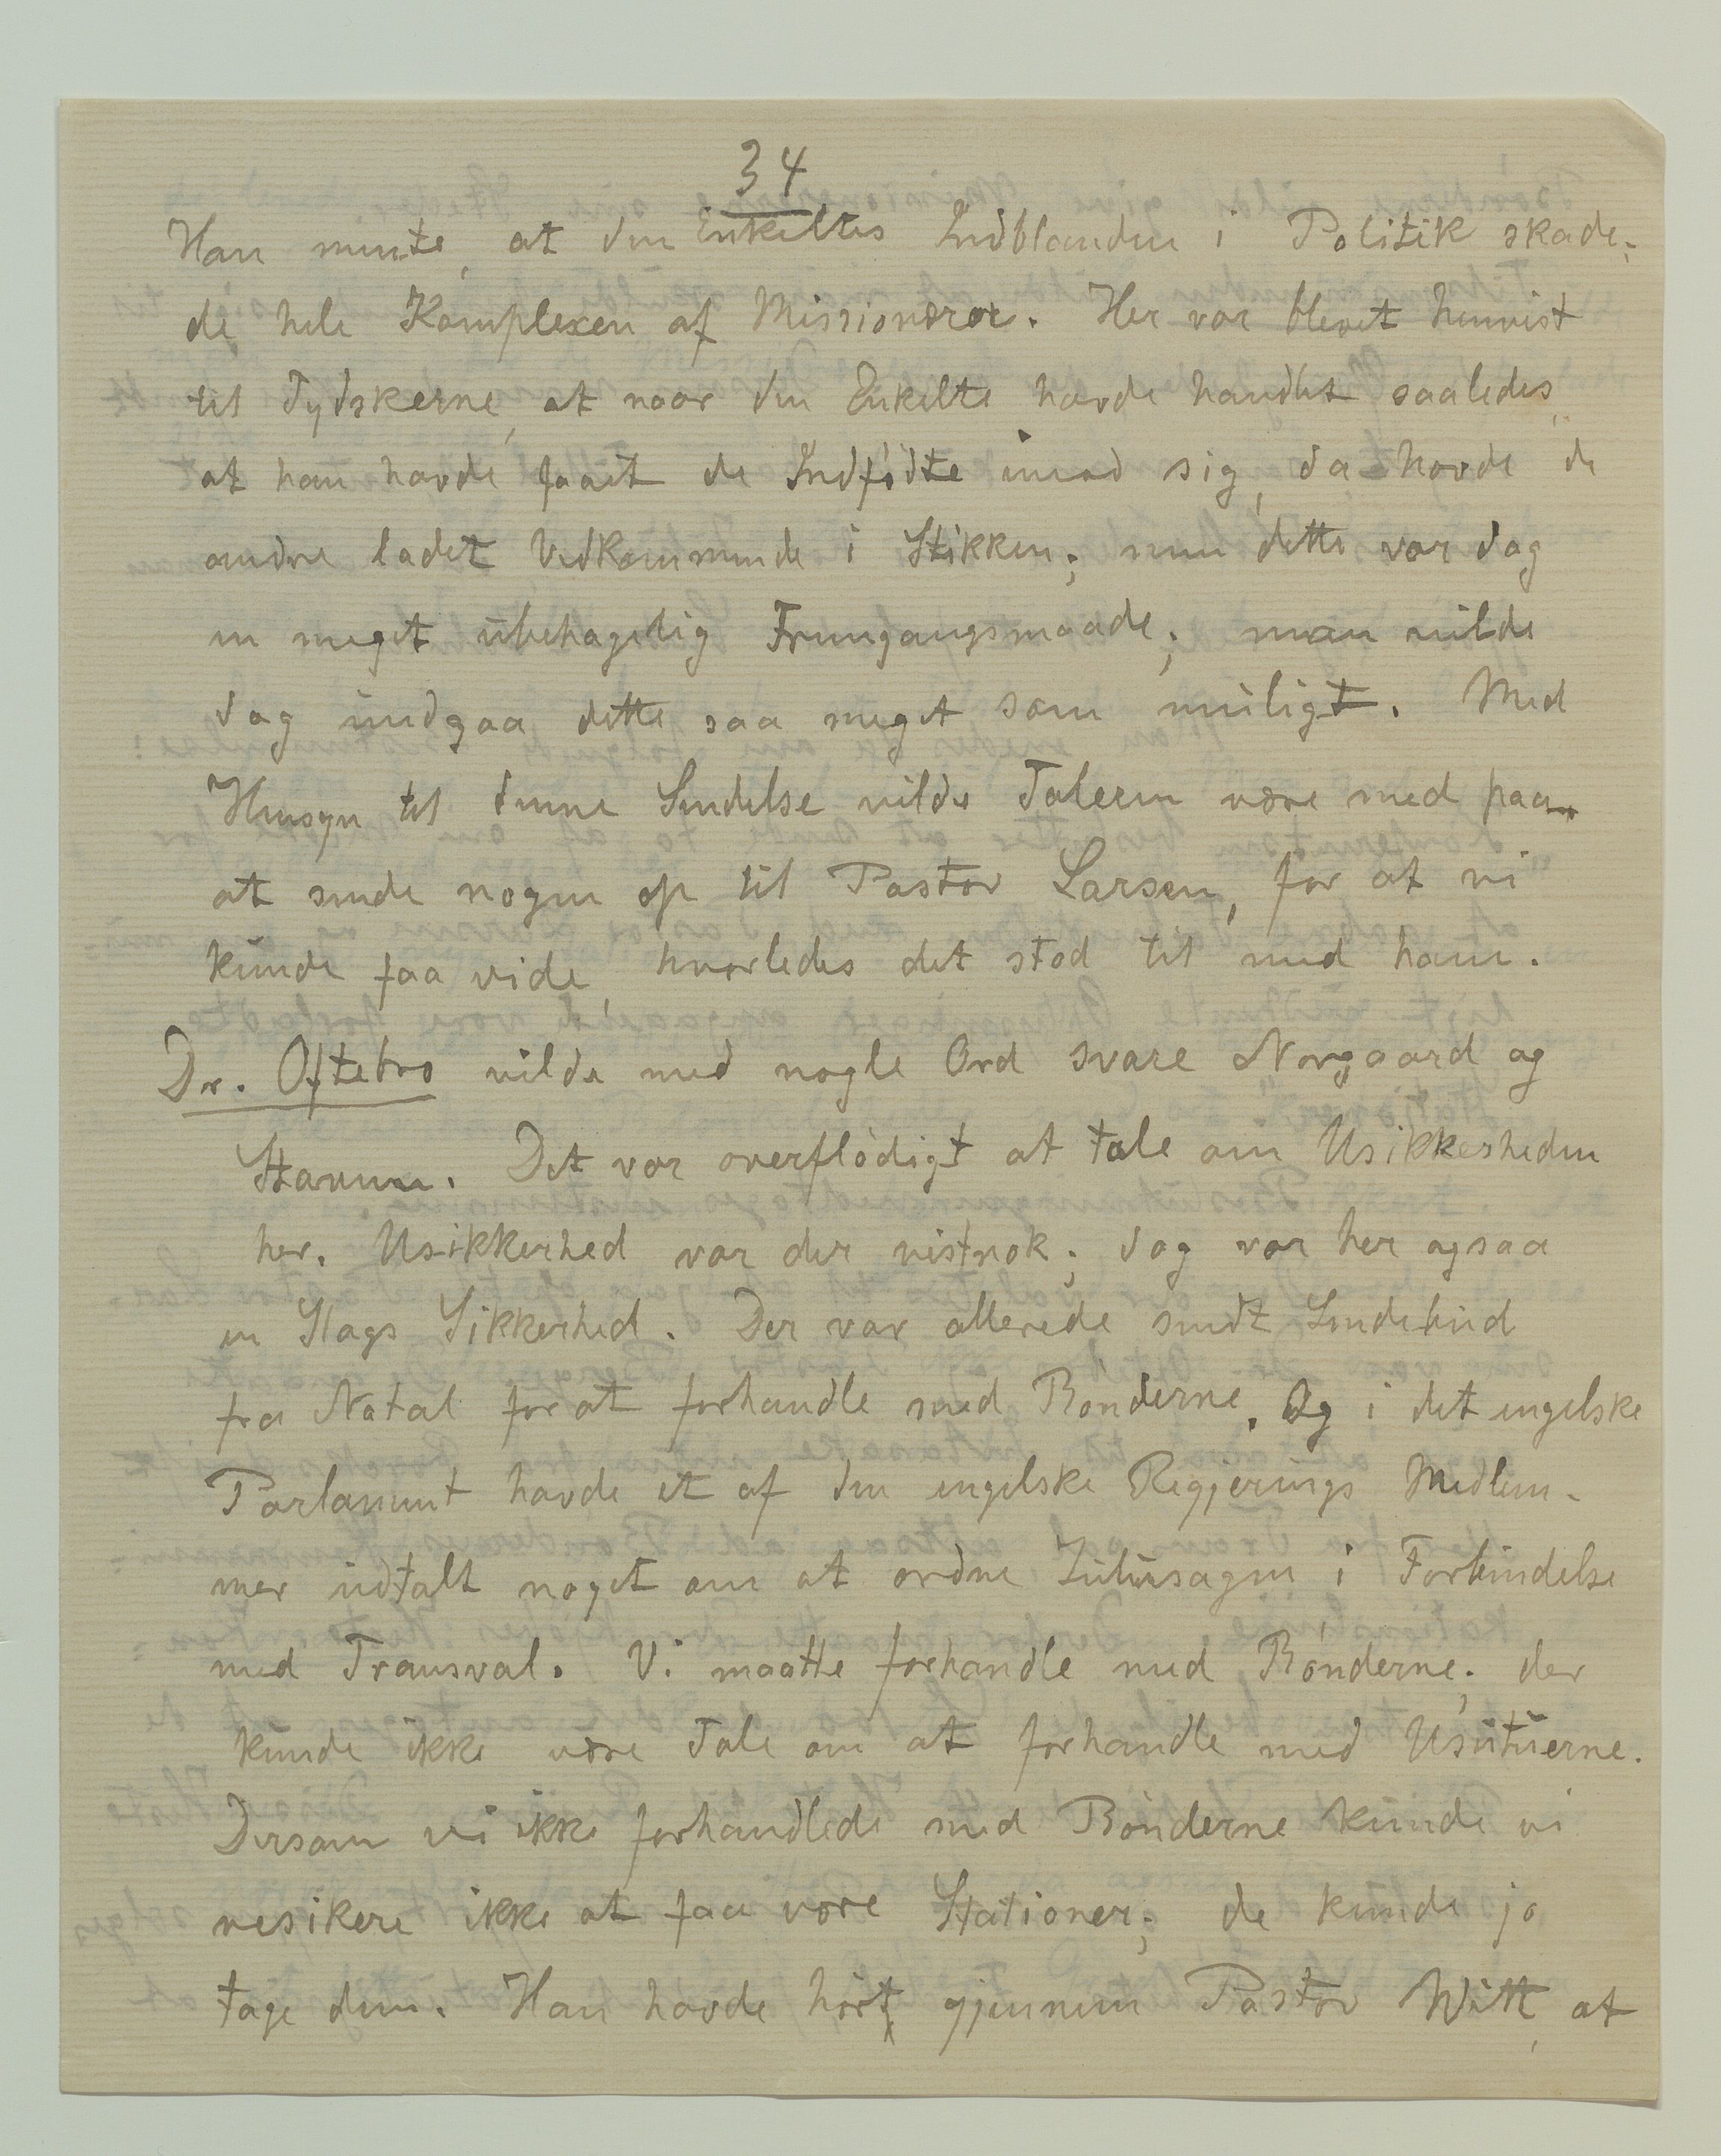 34
Han mente, at den Enkeltes Indblanden i Politik skade-
de hele Komplexen af Missionærer. Her var blevet henvist
til Tydskerne, at naar den Enkelte havde handlet saaledes,
at han havde faaet de Indfödte imod sig, da havde de
andre ladet Vedkommende i Stikken; men dette var dog
en meget ubehagelig Fremgangsmaade; man vilde
dog undgaa dette saa meget som muligt. Med
Hensyn til denne Sendelse vilde Taleren være med paa
at sende nogen op til Pastor Larsen, for at vi
kunde faa vide, hvorledes det stod til med ham.
Dr. Oftebro vilde med nogle Ord svare Norgaard og
Stavem. Det var overflödigt at tale om Usikkerheden
her. Usikkerhed var der vistnok; dog var her ogsaa
en Slags Sikkerhed. Der var allerede sendt Sendebud
fra Natal for at forhandle med Bönderne. Og i det engelske
Parlament havde et af den engelske Regjerings Medlem-
mer udtalt noget om at ordne Zulusagen i Forbindelse
med Transval. Vi maatte forhandle med Bönderne; der
kunde ikke være Tale om at forhandle med Usutuerne.
Dersom vi ikke forhandlede med Bönderne kunde vi
resikere ikke at faa vore Stationer; de kunde jo
tage dem. Han havde hört gjennem Pastor Witt, at